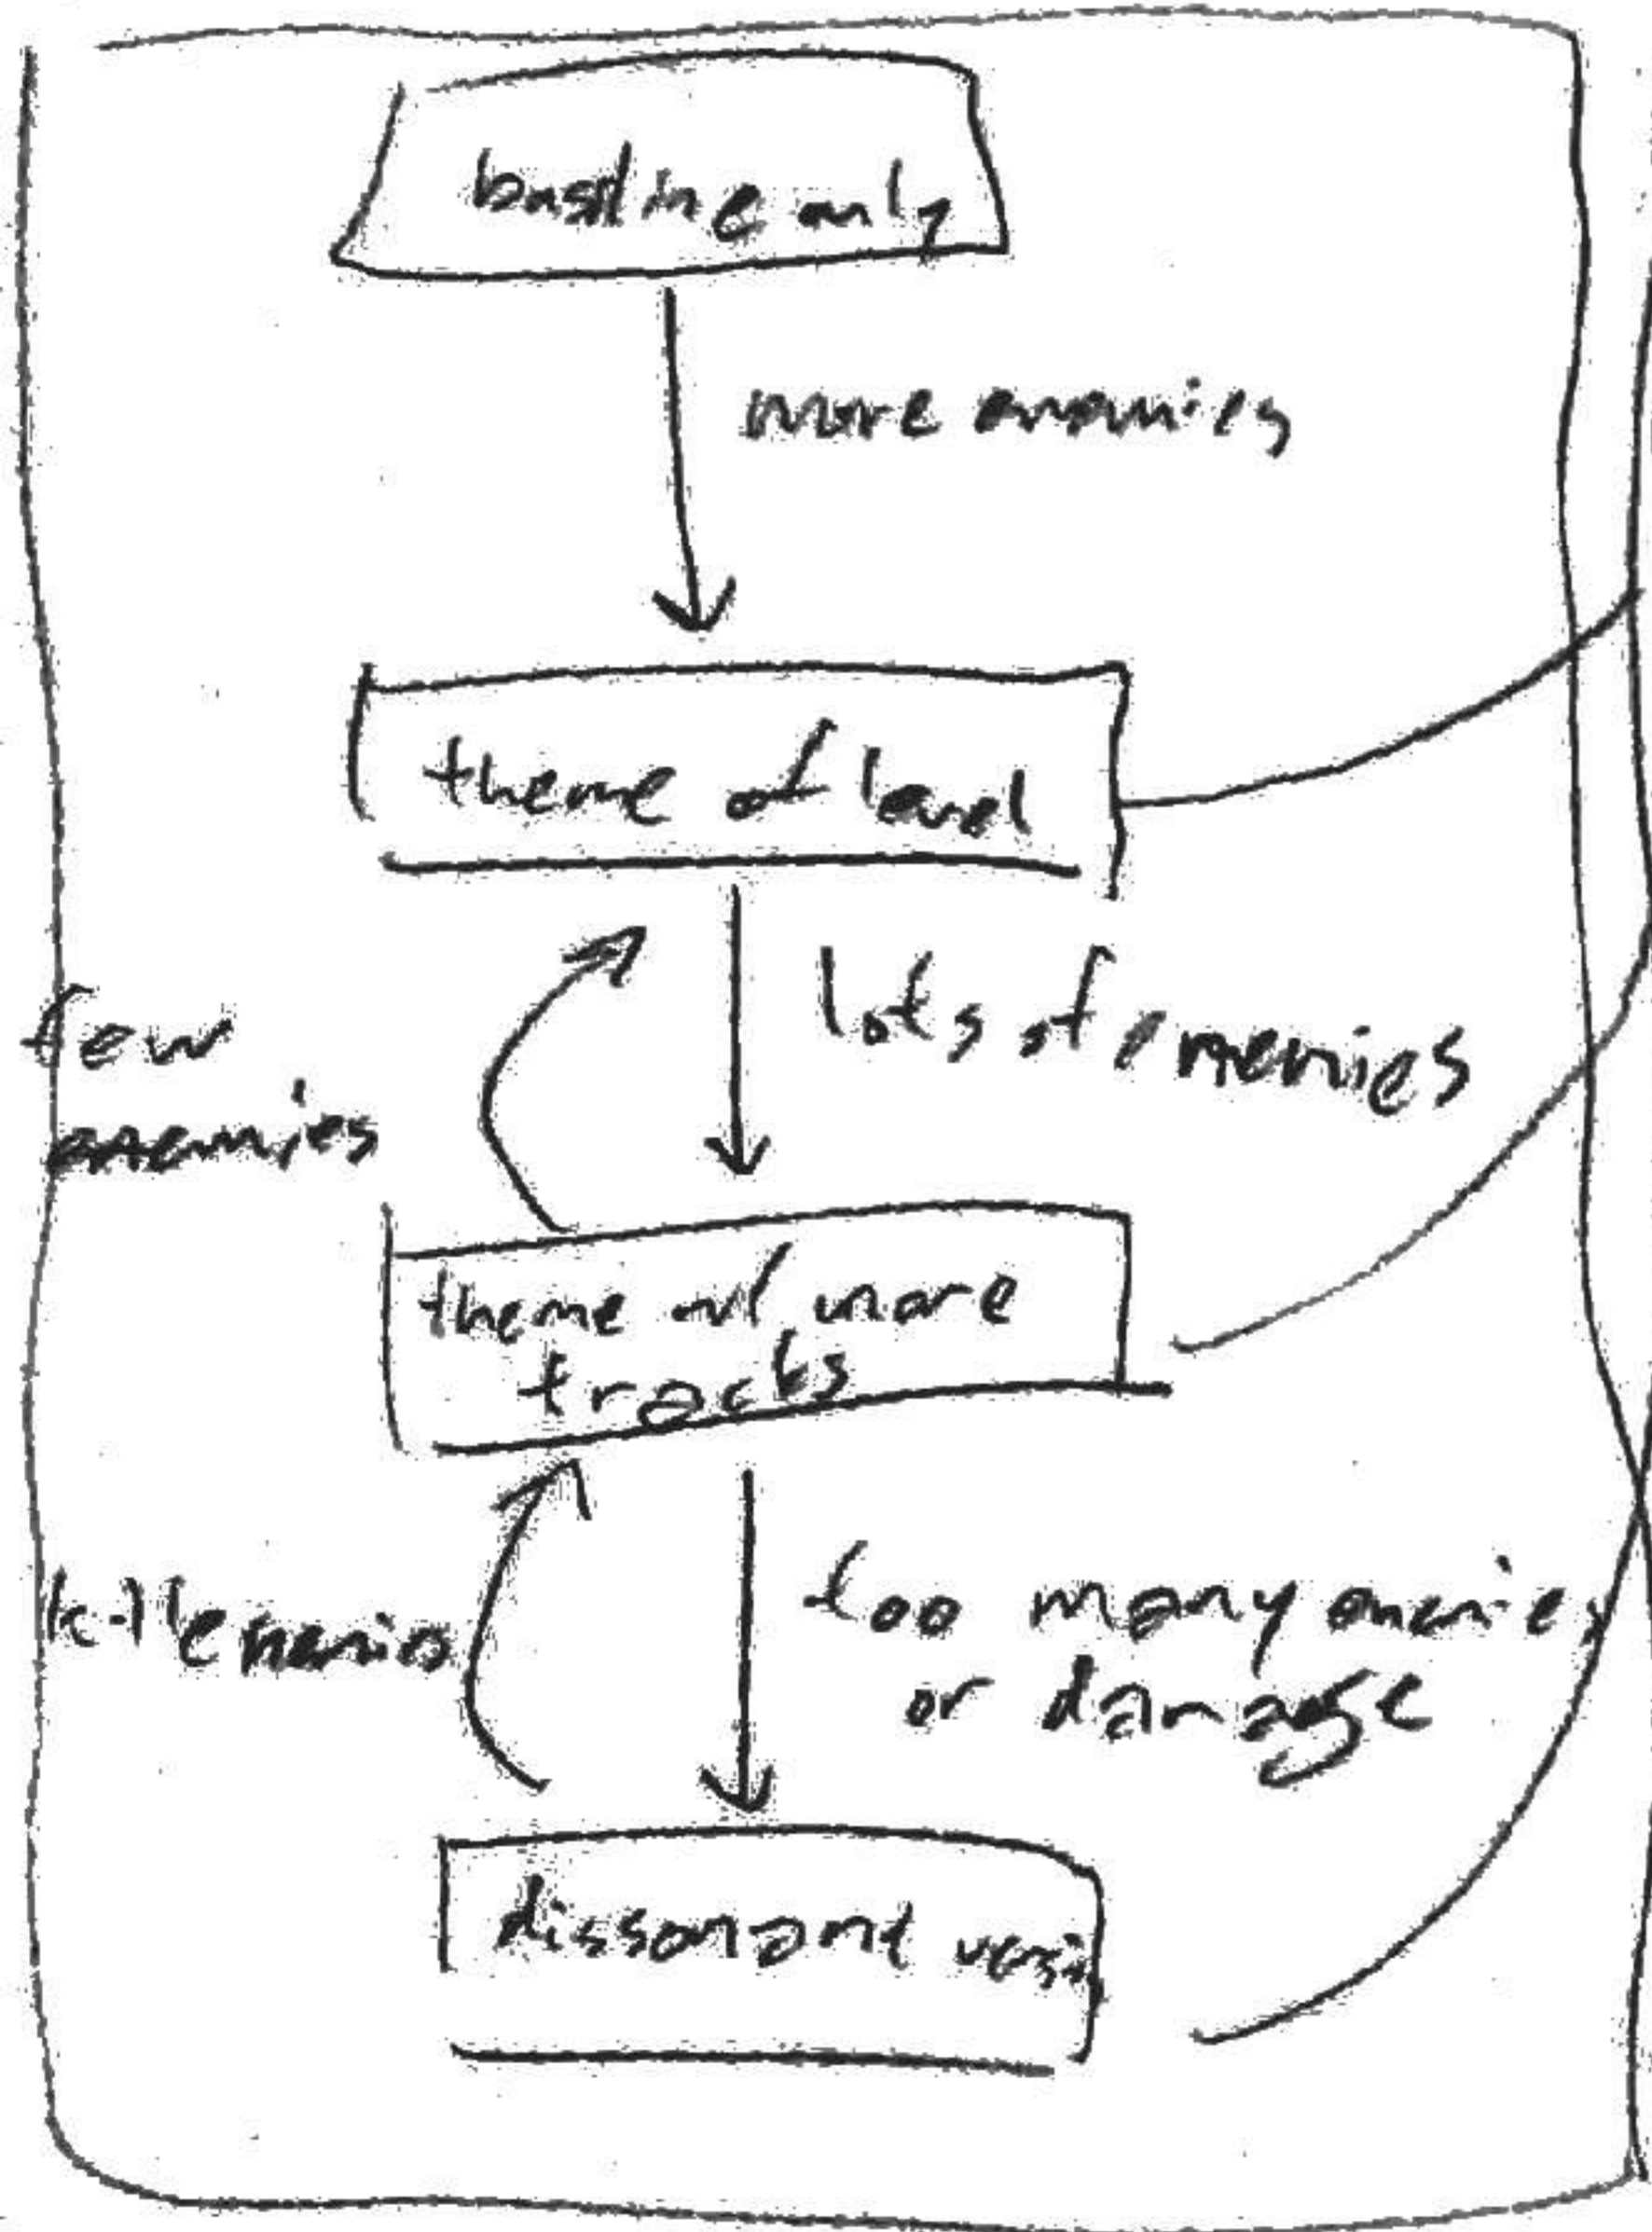 bassline only
more enemies
theme of level
few
enemies
lots of enemies
theme w/ more
tracks
kill enemies
too many enemies
or damage
dissonant